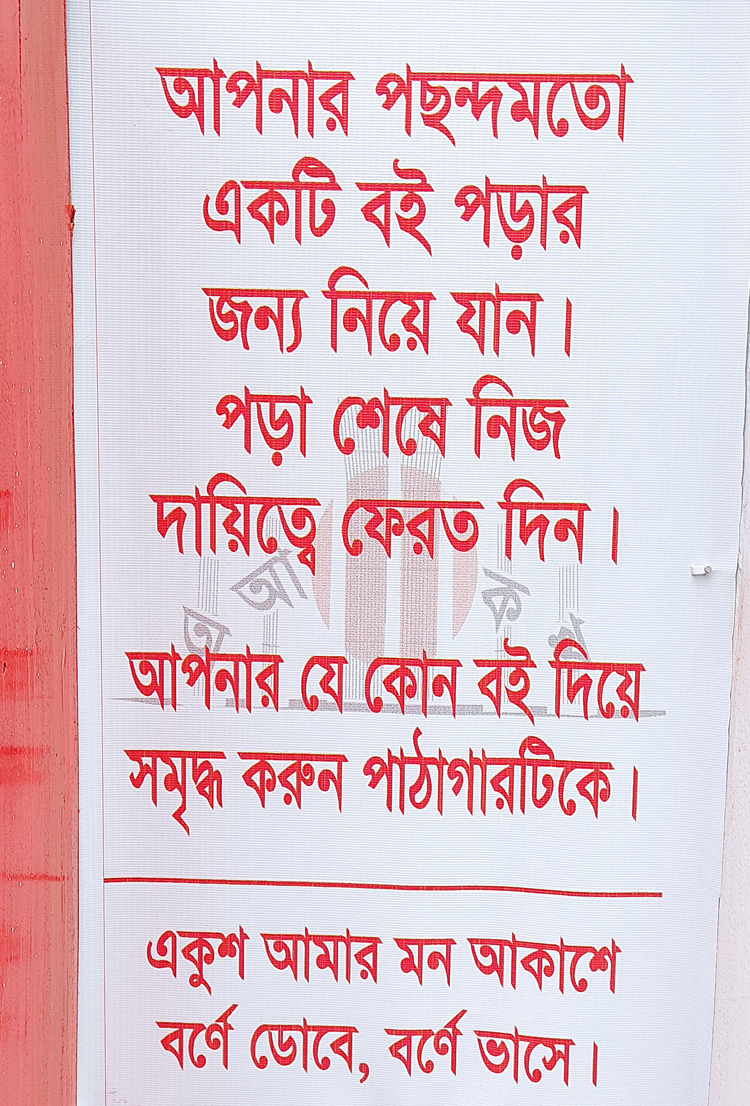 আপনার পছন্দমতো
একটি বই পড়ার
জন্য নিয়ে যান।
পড়া শেষে নিজ
দায়িত্বে ফেরত দিন।
অ আ ক
আপনার যে কোন বই দিয়ে
সমৃদ্ধ করুন পাঠাগারটিকে।
একুশ আমার মন আকাশে
বর্ণে ডোবে, বর্ণে ভাসে।